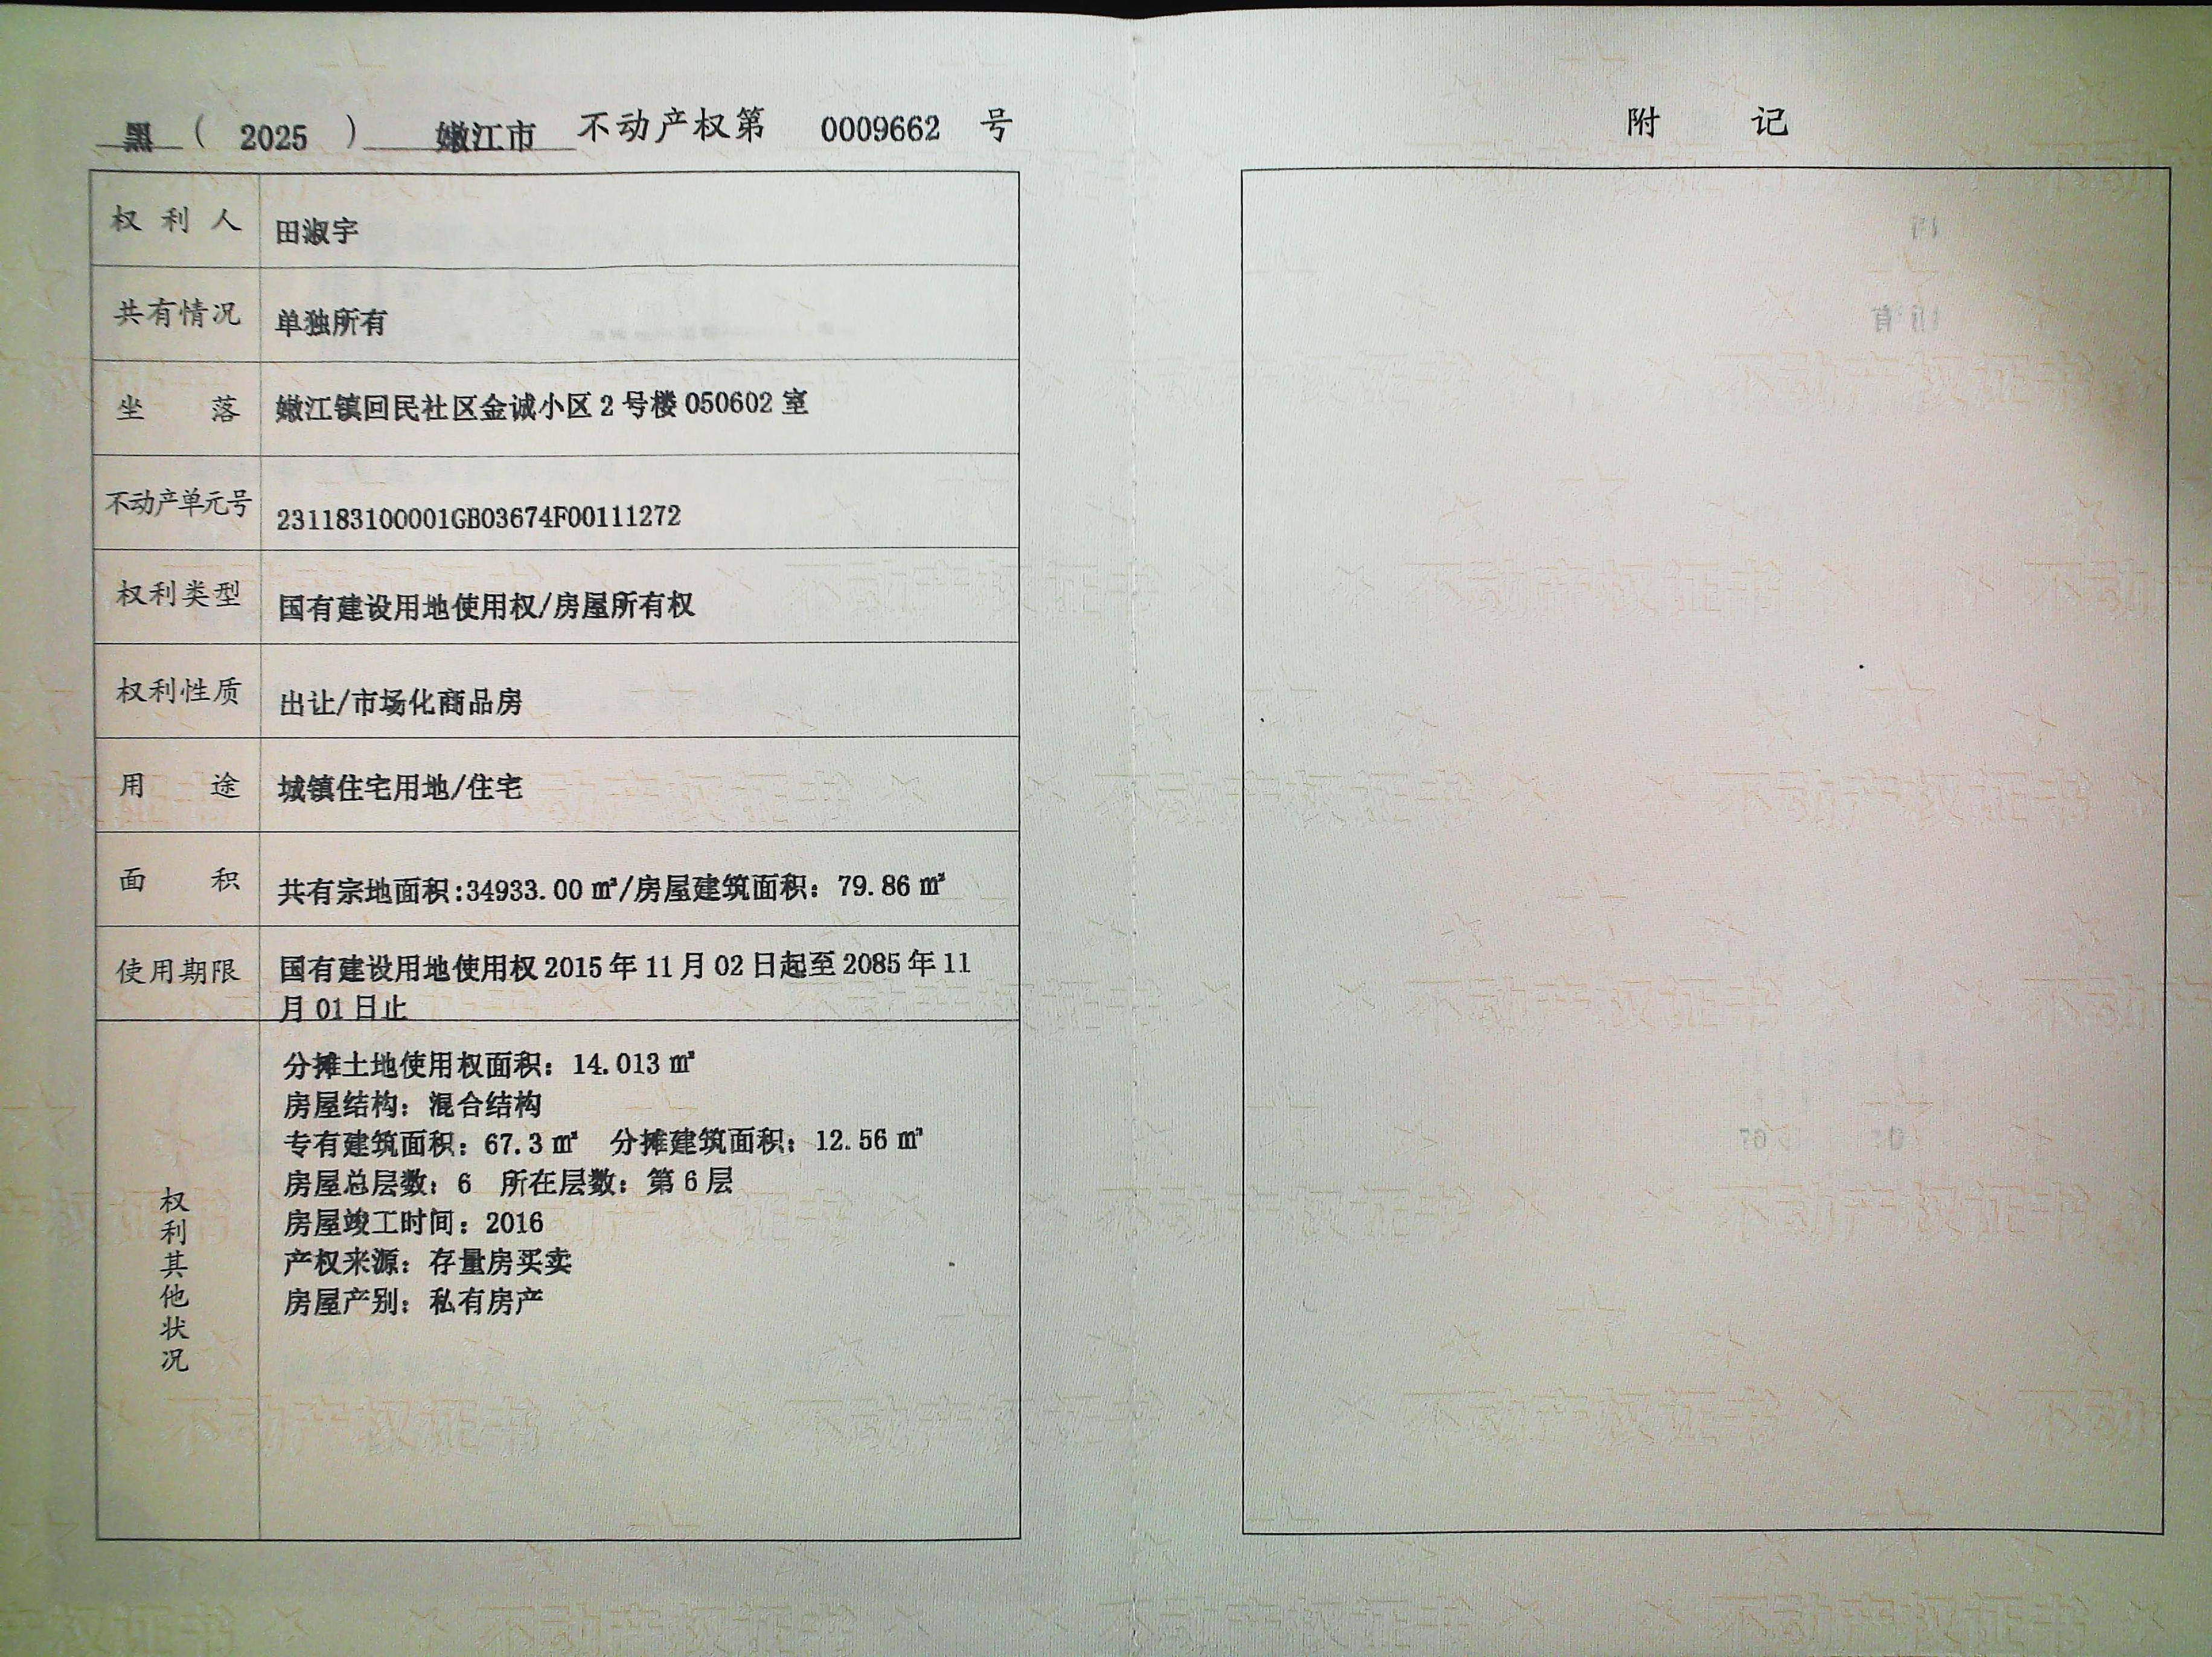 黑 （ 2025 ） 嫩江市 不动产权第 0009662 号
权利人 田淑宇
共有情况 单独所有
坐落 嫩江镇回民社区金诚小区2号楼050602室
不动产单元号 231183100001GB03674F00111272
权利类型 国有建设用地使用权/房屋所有权
权利性质 出让/市场化商品房
用途 城镇住宅用地/住宅
面积 共有宗地面积:34933.00㎡/房屋建筑面积：79.86㎡
使用期限 国有建设用地使用权2015年11月02日起至2085年11
月01日止
权利其他状况
分摊土地使用权面积：14.013㎡
房屋结构：混合结构
专有建筑面积：67.3㎡ 分摊建筑面积：12.56㎡
房屋总层数：6 所在层数：第6层
房屋竣工时间：2016
产权来源：存量房买卖
房屋产别：私有房产
附记
不动产权证书